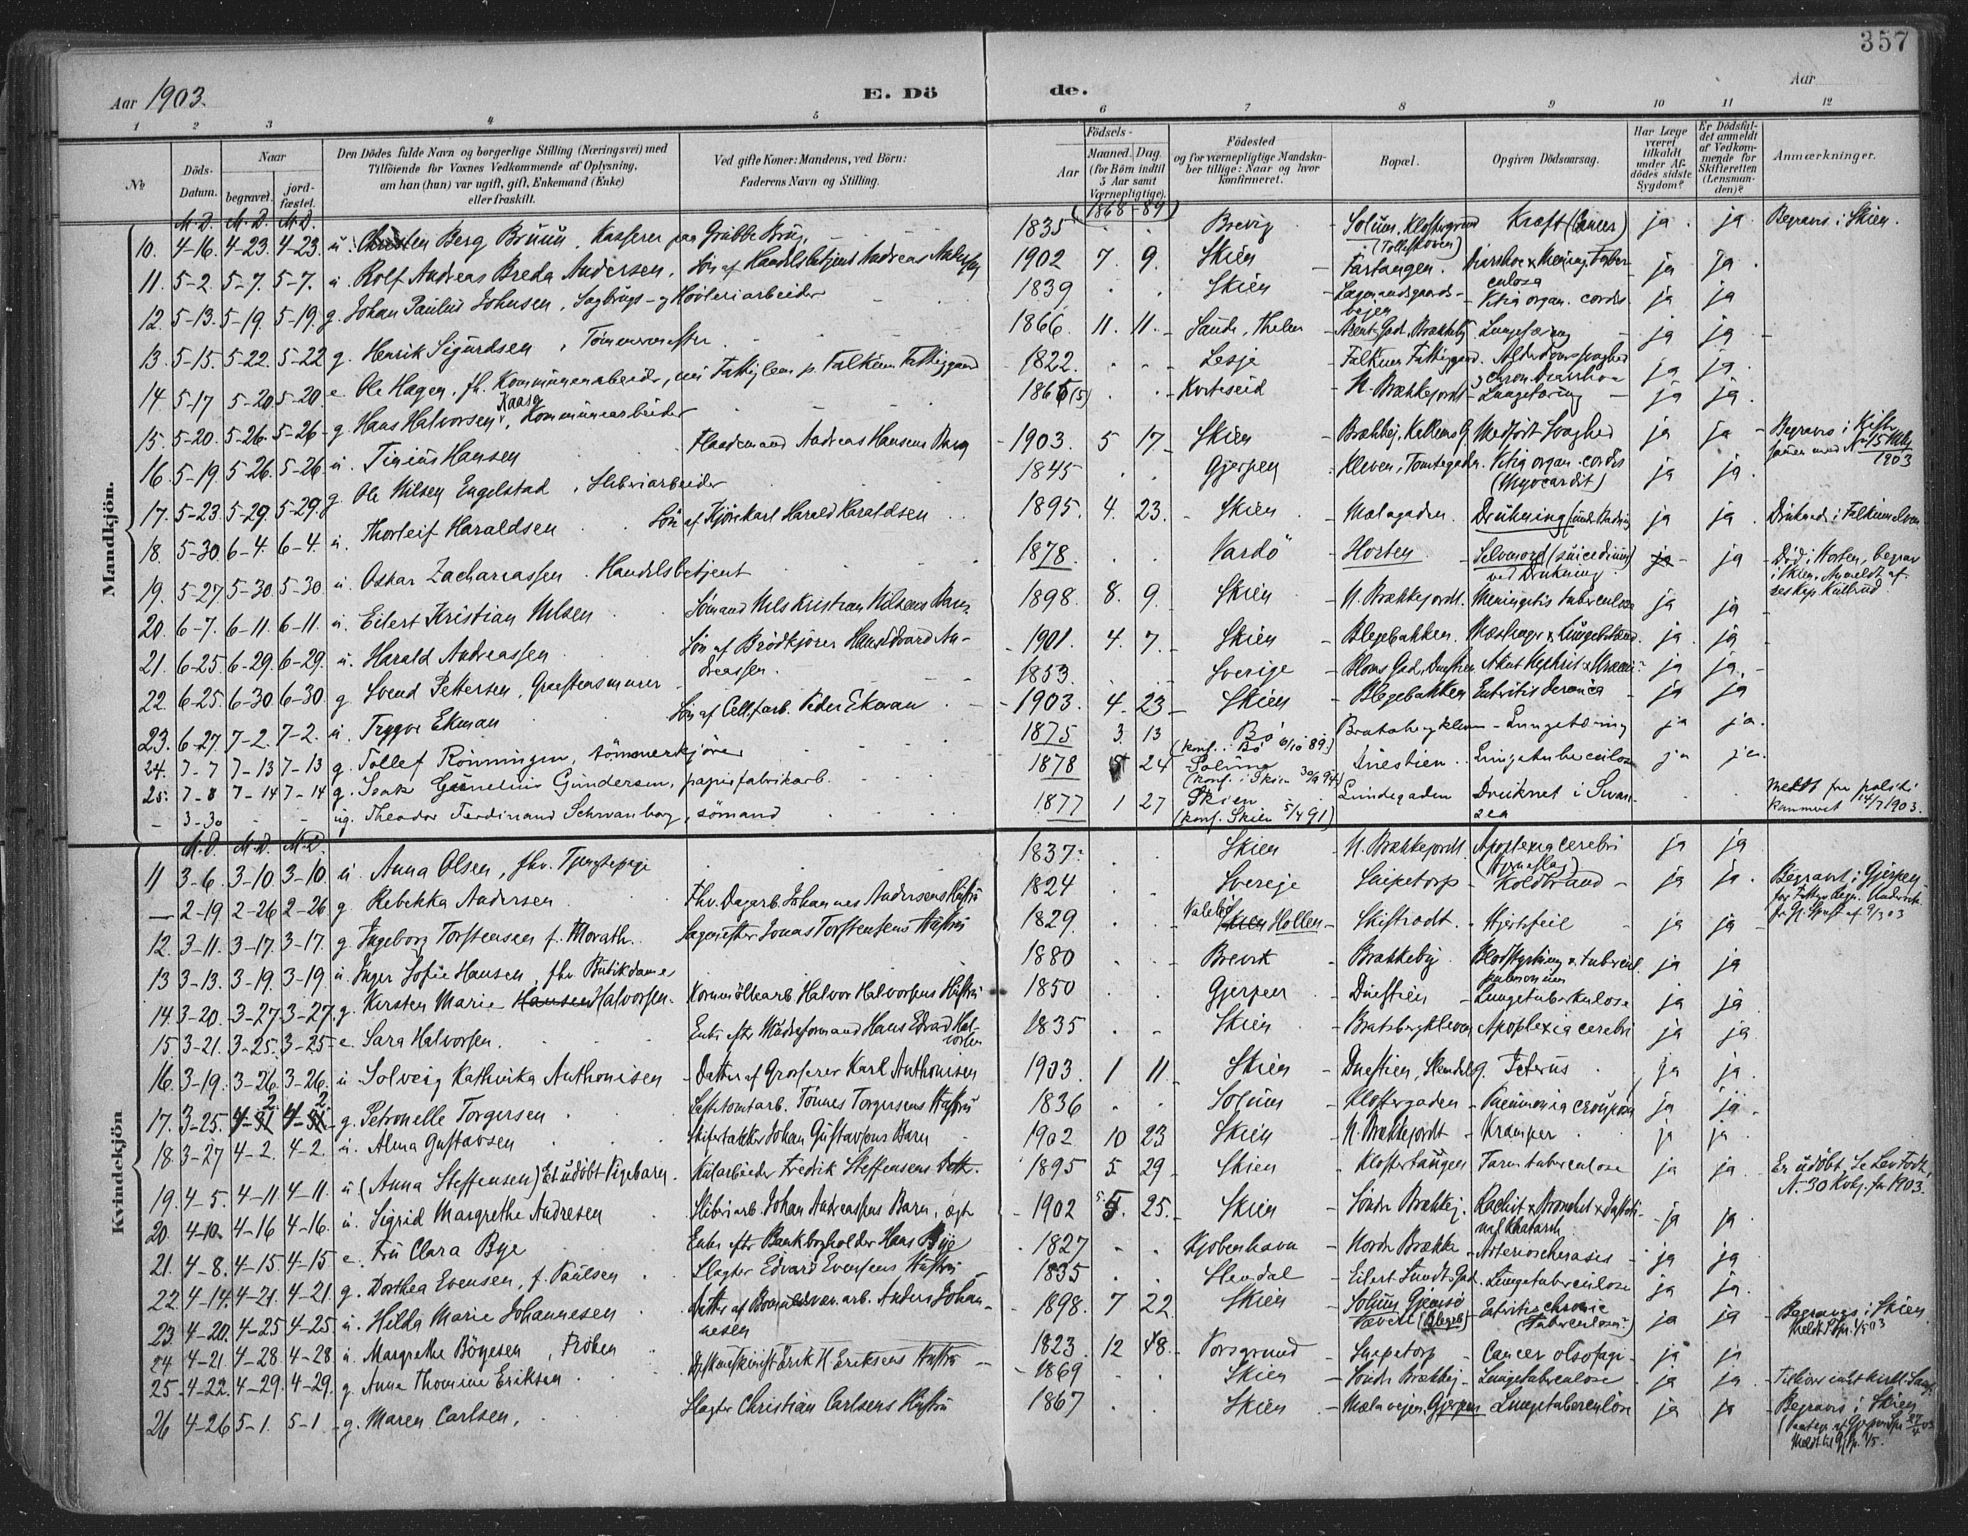 357
Aar 1903.
E. Dö
de.
Aar
1 2 3 4 5 6 7 8 9 10 11 12
№
Döds- Datum.
Naar
begravet.
jord- fæstet.
Den Dödes fulde Navn og borgerlige Stilling (Næringsvei) med
Tilföiende for Voxnes Vedkommende af Oplysning,
om han (hun) var ugift, gift, Enkemand (Enke)
eller fraskilt.
Ved gifte Koner: Mandens, ved Börn:
Faderens Navn og Stilling.
Födsels-
Aar
Maaned. Dag.
(for Börn indtil
5 Aar samt
Værnepligtige).
Födested
og for værnepligtige Mandska-
ber tillige: Naar og hvor
konfirmeret.
Bopæl.
Opgiven Dödsaarsag.
Har Læge
været
tilkaldt
under Af-
dödes sidste
Sygdom?
Er Dödsfal-
det anmeldt
af Vedkom-
mende for
Skifteretten
(Lensman-
den)?
Anmærkninger.
M. D. M. D. M. D.
(1868-89)
Mandkjön.
10. 4-16. 4-23. 4-23. u. Christen Berg Bruun, Kasserer paa Gråbbe Brug. 1835 Brevig Solum, Klostergaard (Tollefshaven) Kræft (Cancer) ja ja Begravs i Skien.
11. 5-2. 5-7. 5-7. u Rolf Andreas Breda Andersen, Søn af Handelsbetjent Andreas Andersen 1902 7 9. Skien Fartangen. Diarrhoe & Mening. Tuberculosa ja ja
12. 5-13. 5-19. 5-19. g. Johan Paulus Johnsen, Sagbrugs- og Høvleriarbeider 1839 Skien Lagmandsgaards-vejen Vitia organ. cordis ja ja
13. 5-15. 5-22. 5-22 g. Henrik Sigurdsen, Tømmermester 1866. 11. 11. Saude, Thelen Arent Gad. Brækkebÿ Lungetæring ja ja
14. 5-17 5-20 5-20. e. Ole Hagen, fh. Kommunearbeider, nu Fattiglem p. Falkum Fattiggaard 1822. Lesje Falkum Fattiggaard. Alderdomssvaghed & chron. Diarrhoe ja ja.
15. 5-20. 5-26. 5-26 g. Hans Halvorsen Kaasa, Kommunearbeider 1865 (5) Korteseid N. Brækkejordt Lungetæring ja ja.
16. 5-19. 5-26. 5-26 u. Tinius Hansen Flaademand Andreas Hansens Barn 1903. 5 17. Skien Brækkebÿ, Kalkens G. Medfødt Svaghed ja ja Begravs i Kiste sammen med № 15 Mkj 1903
17. 5-23. 5-29. 5-29 g. Ole Nilsen Engelstad, Sliberiarbeider 1845 Gjerpen Kleven, Tomtegaden Vitia organ. cordis (Myocardit) ja ja.
18. 5-30. 6-4. 6-4. u. Thorleif Haraldsen Søn af Kjørekarl Harald Haraldsen 1895. 4. 23. Skien Mælagaden. Drukning (under Badning ja ja. Druknede i Falkumelven
19. 5-27. 5-30. 5-30. u. Oskar Zachariassen. Handelsbetjent 1878. Vardö Horten Selvmord (suicidium) ved Drukning ja ja Død i Horten, begrav. i Skien. Anmeldt af
20. 6-7. 6-11. 6-11. u. Eilert Kristian Nilsen Sømand Nils Kristian Nilsens Barn 1898. 8. 9. Skien N. Brækkejordt. Meningitis tuberculosa ja ja
21. 6-25 6-29. 6-29. u. Harald Andreassen Søn af Brødkjører Hans Edvard An-dreassen. 1901. 4. 7. Skien Blegebakken. Mæslinger & Lungebetænd. ja ja
22. 6-25. 6-30 6-30. g Svend Pettersen, Graastensmurer 1853. Sverige Bloms Gad. Duestien Akut Nephrit & Uræmi ja ja.
23. 6-27. 7-2. 7-2. u. Trygve Ekman Søn af Cell.farb. Peder Ekman 1903. 4 23 Skien Blegebakken Entritis ja ja
24. 7-7 7-13 7-13 g. Tollef Rønningen, tømmerkjører 1875 3. 13 Bø (konf. i Bø 6/10 89.) Bratsbergkleven Lungetæring ja ja.
25. 7-8 7-14 7-14 g. Isak Gunelius Gundersen, papirfabrikarb. 1878 24 Solum (konf. i Skien 30/9 94) Duestien. Lungetuberculose ja ja.
- 3-30 - - ug. Theodor Ferdinand Schwanborg, sømand 1877 1 27 Skien (konf. Skien 5/4 91) Lundegaden Druknet i Swan-sea Meldt fra politi-kammeret 14/7 1903.
M. D. M. D. M. D.
Kvindekjön
11 3-6. 3-10. 3-10. u Anna Olsen, fhv. Tjenestepige 1837. Skien N. Brækkejordt. Apoplexia cerebri (Hjerneslag) ja ja
— 2-19. 2-26 2-26 g. Rebekka Andersen. Fhv. Dagarb. Johannes Andersens Hustru 1824 Sverige Snipetorp Koldbrand ja ja. Begravet i Gjerpen
12. 3-11. 3-17. 3-17. g. Ingeborg Torstensen f. Morath. Sagmester Jonas Torstensens Hustru 1829. Valebø Skien Hollen Skistrædt. Hjertefeil ja ja
13 3-13. 3-19. 3-19. u Inger Sofie Hansen, fhv. Butikdame 1880 Brevik Brækkeby. Blodstyrtning & tubercul. pulmonum ja ja
14. 3-20. 3-27. 3-27. g. Kirsten Marie Hansen Halvorsen. Kornmøllearb. Halvor Halvorsens Hustru 1850 Gjerpen Duestien Lungetuberkulose ja ja
15. 3-21. 3-25. 3-25 e. Sara Halvorsen. Enke efter Mudreformand Hans Edvard Hal-vorsen 1835 Skien Bratsbergkleven Apoplexia cerebri ja ja
16. 3-19. 3-26. 3-26. u Solveig Kathinka Anthonisen Datter af Grosserer Karl Anthonisen 1903 1 11 Skien Duestien, Hendelsg. Icterus ja ja.
17. 3-25. 4-31 2 4-31 2. g. Petronelle Torgersen Lastetomtarb. Tønnes Torgersens Hustru 1836 Solum Klostergaden Pneumonia crouposa ja ja.
18. 3-27 4-2. 4-2. u. Alma Gustavsen Skifertækker Johan Gustavsens Barn 1902 10 23 Skien N. Brækkejordt Kramper ja ja.
19. 4-5. 4-11 4-11. u (Anna Steffensen) Et udøbt Pigebarn. Murarbeider Fredrik Steffensens Dott. 1895 5 29 Skien Klostertangen Tarmtuberculose ja ja. Er udøbt. Se Lev. Født. №. 30 Kvkj. for 1903.
20. 4-10. 4-16 4-16. u. Sigrid Margrethe Andresen Sliberiarb. Johan Andreassens Barn, ægte 1902 5. 25. Skien Søndr Brækkebÿ. Rachit & Bronchit & Intesti-nalkhatarrh. ja ja
21. 4-8. 4-15 4-15 e. Fru Clara Bye Enke efter Bankbogholder Hans Bye 1827 Kjøbenhavn Nordr Brække Arteriosclerosis ja ja
22. 4-14. 4-21. 4-21 g. Dorthea Evensen, f. Paulsen Slagter Edvard Evensens Hustru 1835 Slemdal Eilert Sundts Gad. Lungetuberculose ja ja.
23 4-20. 4-25 4-25 u. Hilda Marie Johannesen Datter af Bomuldsvæv.arb. Anders Johan-nesen 1898. 7 22 Skien Solum Gjemsø Væveri (Klosgt) Entritis chronic (Tuberculosis) ja ja Begravs i Skien.
24 4-21. 4-28 4-28 u. Margrethe Böyesen, Frøken 1823. 12 48. Porsgrund Snipetorp Cancer olsofagi ja ja
25. 4-22. 4-29. 4-29. g. Anna Thomine Eriksen. Erik H. Eriksens Hustru 1869 Skien Søndr Brækkebÿ. Lungetuberculose ja ja
26 4-26 5-1. 5-1. g. Maren Carlsen, Slagter Christian Carlsens Hustru 1867 Skien Mælavejen, Gjerpen Lungetuberculose ja ja Begravs i Skien